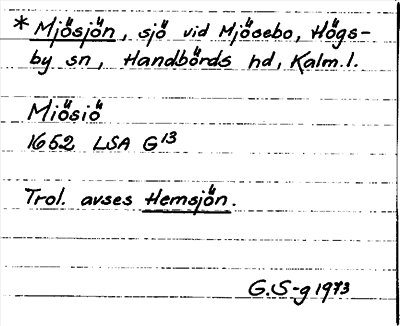 * Mjösjön, sjö vid Mjösebo, Högs-
by sn, Handbörds hd, Kalm. l.
Miösiö
1652 LSA G13
Trol. avses Hemsjön.
G.S-g 1973